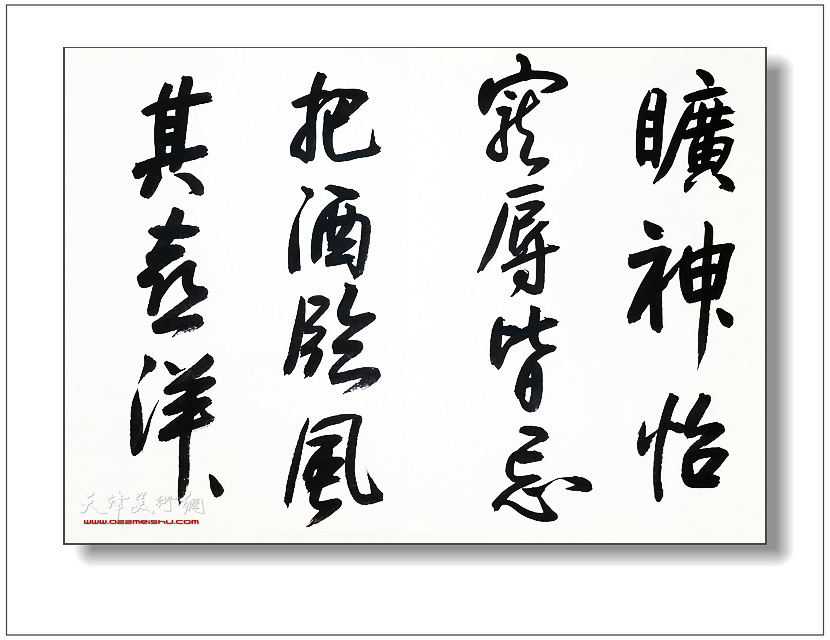 曠神怡
寵辱皆忘
把酒臨風
其喜洋、
天津美術網
www.022meishu.com